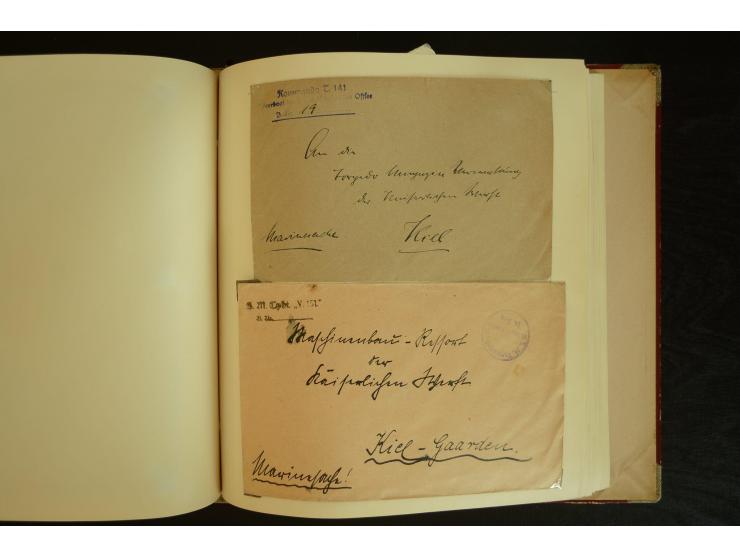 Kommando T. 141
Ostsee
19
An die
Torpedo Verwaltung
der Kaiserlichen Werft
Marinesache
Kiel
S. M. Tpbt. „V. 151."
B. Nr.
Maschinenbau - Ressort
der
Kaiserlichen Werft
Kiel - Gaarden.
Marinesache!